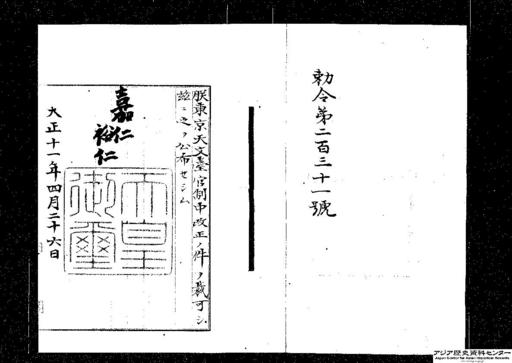 勅令第二百三十一號
朕東京天文臺官制中改正ノ件ヲ裁可シ
玆ニ之ヲ公布セシム
嘉仁
裕仁
天皇御璽
大正十一年四月二十六日
アジア歴史資料センター
Japan Center for Asian Historical Records